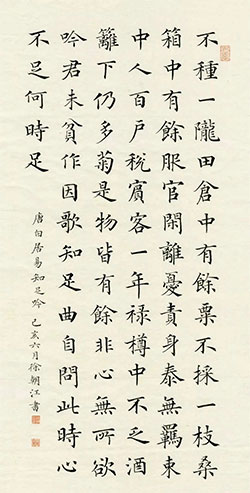 不種一隴田倉中有餘粟不採一枝桑
箱中有餘服官閑離憂責身泰無羈束
中人百戶稅賓客一年禄樽中不乏酒
籬下仍多菊是物皆有餘非心無所欲
吟君未貧作因歌知足曲自問此時心
不足何時足
唐白居易知足吟 己亥六月徐朝江書